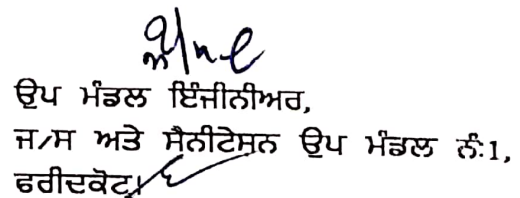 ਉਪ ਮੰਡਲ ਇੰਜੀਨੀਅਰ,
ਜ/ਸ ਅਤੇ ਸੈਨੀਟੇਸ਼ਨ ਉਪ ਮੰਡਲ ਨੰ:1,
ਫਰੀਦਕੋਟ।